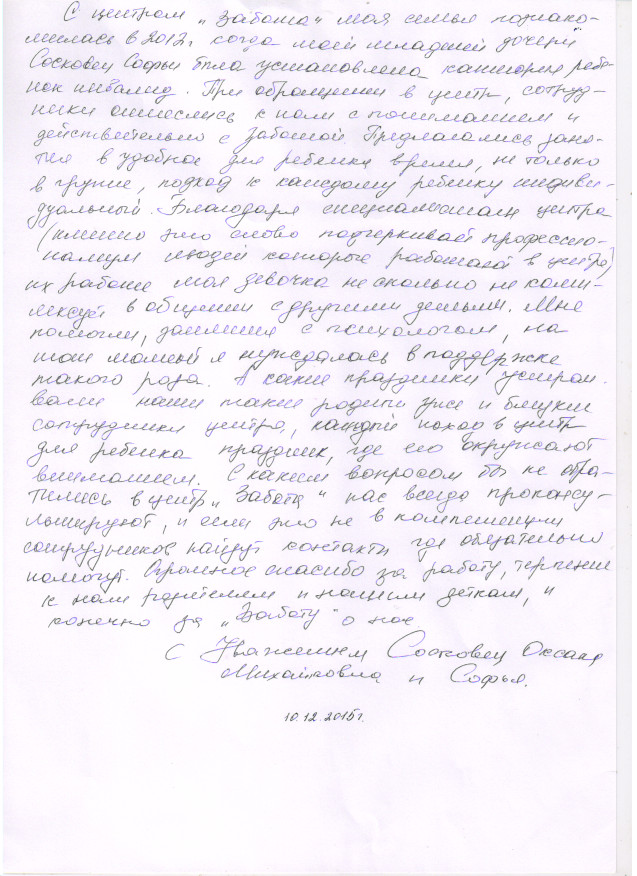 С центром „Забота" моя семья познако-
милась в 2012г когда моей младшей дочери
Сосковец Софьи была установлена категория ребе-
нок инвалид. При обращении в центр, сотруд-
ники отнеслись к нам с пониманием и
действительно с Заботой. Предлагались заня-
тия в удобное для ребенка время, не только
в группе, подход к каждому ребенку индиви-
дуальный. Благодаря специалистам центра
(именно это слово подчеркивает профессио-
нализм людей которые работают в центре)
их работе моя девочка не сколько не комп-
лексует в общении с другими детьми. Мне
помогли, занятия с психологом, на
тот момент я нуждалась в поддержке
такого рода. А какие праздники устраи-
вали наши такие родные уже и близкие
сотрудники центра, каждый поход в центр
для ребенка праздник, где его окружают
вниманием. С каким вопросом бы не обра-
тились в центр „Забота" нас всегда проконсу-
льтируют, и если это не в компетенции
сотрудников найдут контакты где обязательно
помогут. Огромное спасибо за работу, терпение
к нам родителям и нашим деткам, и
конечно за „Заботу" о нас.
С Уважением Сосковец Оксана
Михайловна и Софья.
10.12.2015г.